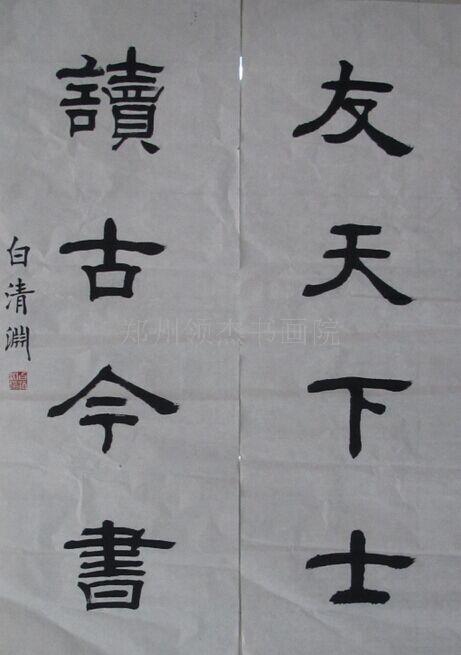 友天下士
讀古今書
白清淵
郑州领杰书画院